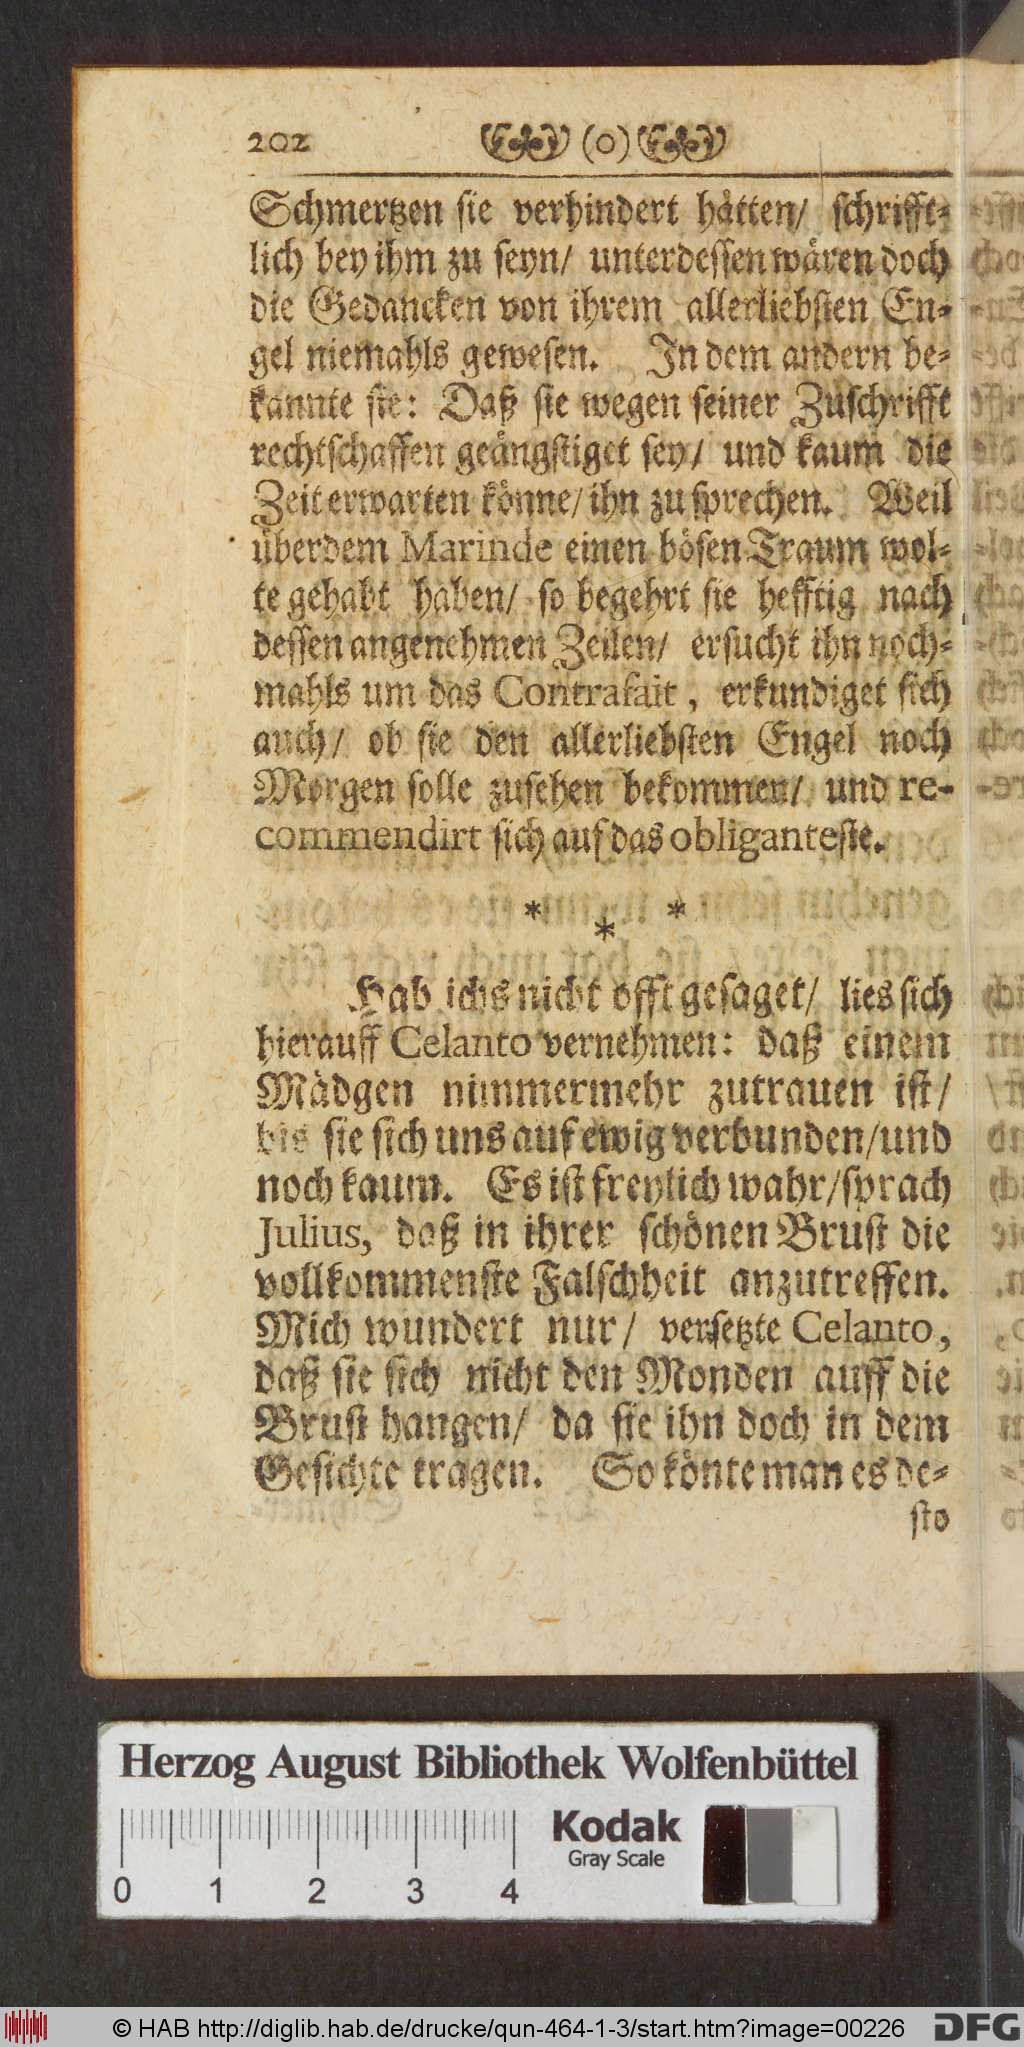 202 (o)
Schmertzen sie verhindert hätten/ schrifft-
lich bey ihm zu seyn/ unterdessen wären doch
die Gedancken von ihrem allerliebsten En-
gel niemahls gewesen. In dem andern be-
kannte sie: Daß sie wegen seiner Zuschrifft
rechtschaffen geängstiget sey/ und kaum die
Zeit erwarten könne/ ihn zu sprechen. Weil
überdem Marinde einen bösen Traum wol-
te gehabt haben/ so begehrt sie hefftig nach
dessen angenehmen Zeilen/ ersucht ihn noch-
mahls um das Contrafait, erkundiget sich
auch/ ob sie den allerliebsten Engel noch
Morgen solle zusehen bekommen/ und re-
commendirt sich auf das obliganteste.
* * *
Hab ichs nicht offt gesaget/ lies sich
hierauff Celanto vernehmen: daß einem
Mädgen nimmermehr zutrauen ist/
bis sie sich uns auf ewig verbunden/ und
noch kaum. Es ist freylich wahr/ sprach
Julius, daß in ihrer schönen Brust die
vollkommenste Falschheit anzutreffen.
Mich wundert nur/ versetzte Celanto,
daß sie sich nicht den Monden auff die
Brust hangen/ da sie ihn doch in dem
Gesichte tragen. So könte man es de-
sto
Herzog August Bibliothek Wolfenbüttel
Kodak
Gray Scale
0 1 2 3 4
© HAB http://diglib.hab.de/drucke/qun-464-1-3/start.htm?image=00226 DFG